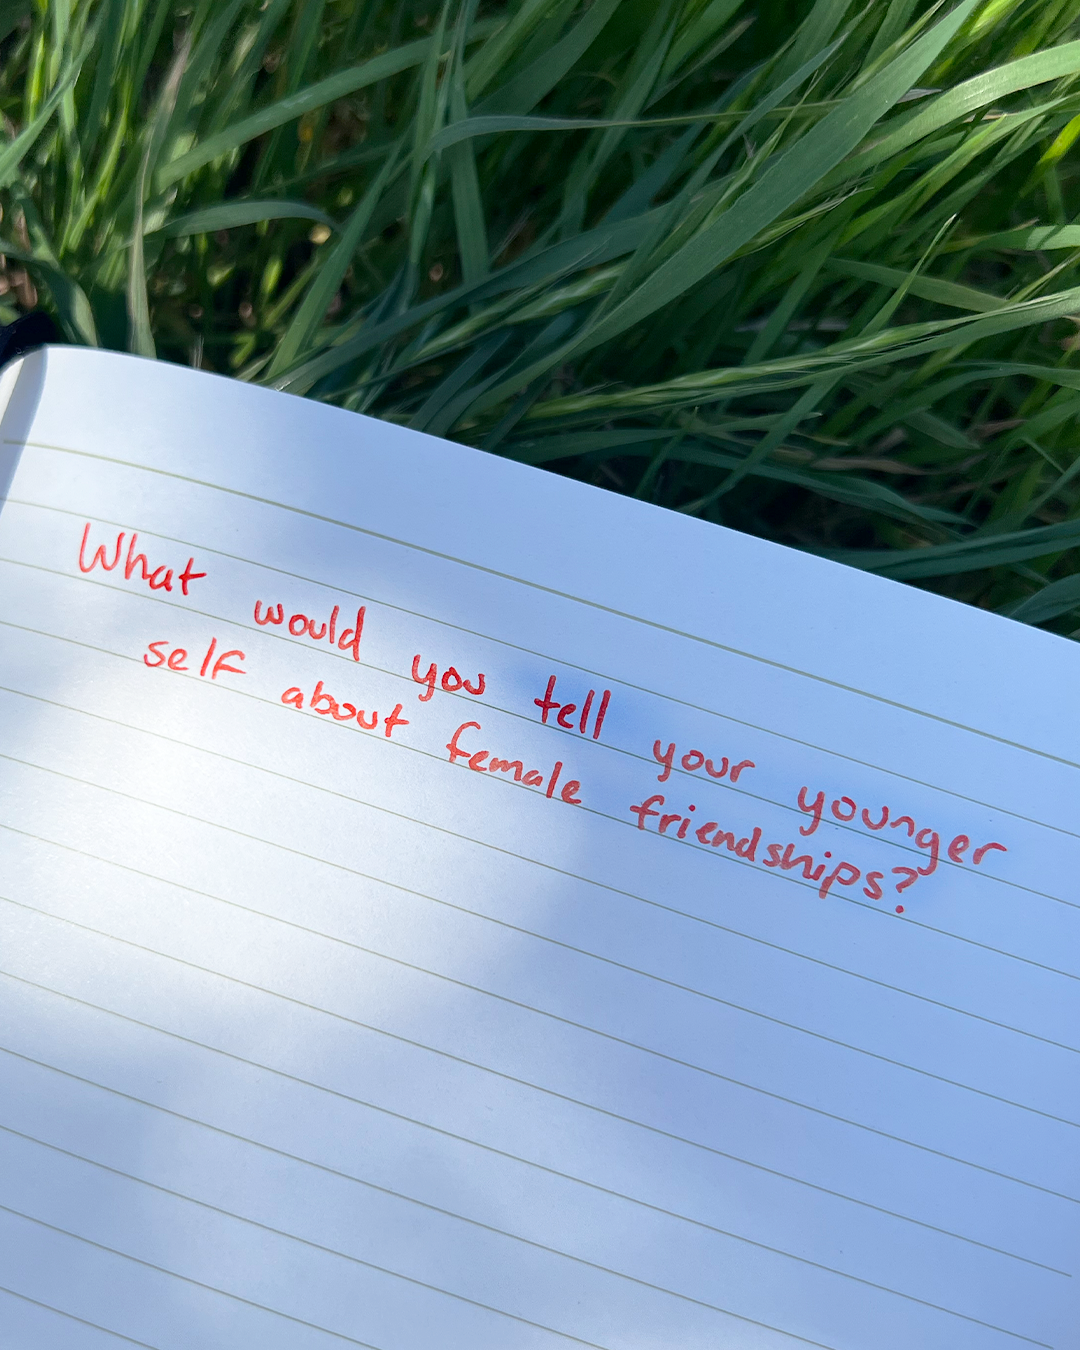 What would you tell your younger
self about female friendships?